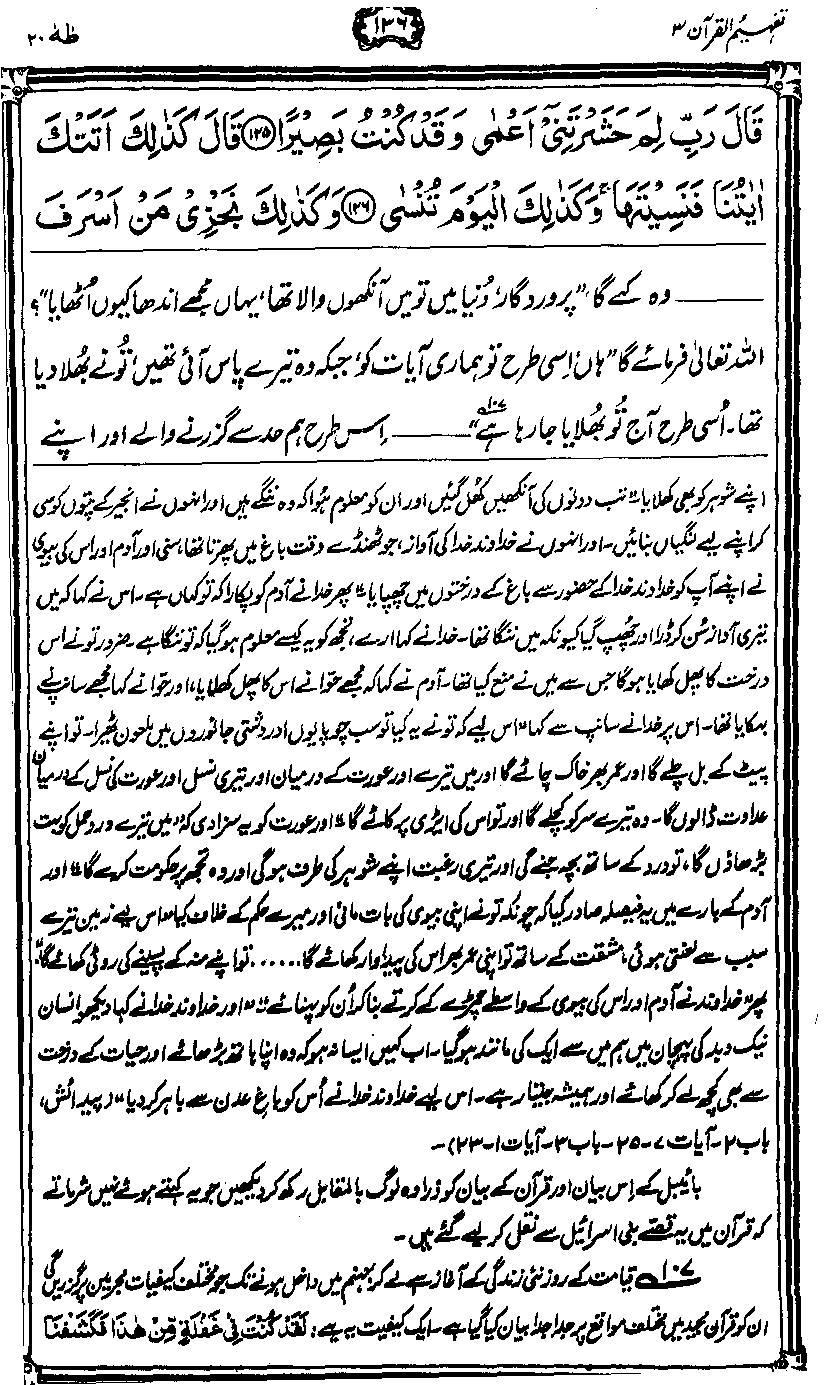 تفہیم القرآن ۳
۱۳۶
طٰہٰ ۲۰
قَالَ رَبِّ لِمَ حَشَرْتَنِیْۤ اَعْمٰی وَقَدْ كُنْتُ بَصِیْرًا ﴿۱۲۵﴾ قَالَ كَذٰلِكَ اَتَتْكَ
اٰیٰتُنَا فَنَسِیْتَهَا ۚ وَكَذٰلِكَ الْیَوْمَ تُنْسٰی ﴿۱۲۶﴾ وَكَذٰلِكَ نَجْزِیْ مَنْ اَسْرَفَ
——— وہ کہے گا، ”پروردگار، دُنیا میں تو میں آنکھوں والا تھا، یہاں مجھے اندھا کیوں اُٹھایا“؟
اللہ تعالیٰ فرمائے گا ”ہاں، اِسی طرح تو ہماری آیات کو، جبکہ وہ تیرے پاس آئی تھیں، تُو نے بھُلا دیا
تھا۔ اُسی طرح آج تُو بھُلایا جا رہا ہے۱۰۷“۔ ——— اِس طرح ہم حد سے گزرنے والے اور اپنے
اپنے شوہر کو بھی کھلایا“ تب دونوں کی آنکھیں کھُل گئیں اور ان کو معلوم ہوا کہ وہ ننگے ہیں اور انہوں نے انجیر کے پتوں کو سی
کر اپنے لیے لنگیاں بنائیں۔ اور انہوں نے خداوند خدا کی آواز، جو ٹھنڈے وقت باغ میں پھرتا تھا، سنی اور آدم اور اس کی بیوی
نے اپنے آپ کو خداوند خدا کے حضور سے باغ کے درختوں میں چھپایا“ پھر خدا نے آدم کو پکارا کہ تو کہاں ہے۔ اس نے کہا کہ میں
تیری آواز سُن کر ڈرا اور چھپ گیا کیونکہ میں ننگا تھا۔ خدا نے کہا ارے، تجھ کو یہ کیسے معلوم ہوگیا کہ تو ننگا ہے۔ ضرور تو نے اس
درخت کا پھل کھایا ہوگا جس سے میں نے منع کیا تھا۔ آدم نے کہا کہ مجھے حوّا نے اس کا پھل کھلایا، اور حوّا نے کہا مجھے سانپ نے
بہکایا تھا۔ اس پر خدا نے سانپ سے کہا ”اس لیے کہ تو نے یہ کیا تو سب چوپایوں اور دشتی جانوروں میں ملعون ٹھیرا۔ تو اپنے
پیٹ کے بل چلے گا اور عمر بھر خاک چاٹے گا اور میں تیرے اور عورت کے درمیان اور تیری نسل اور عورت کی نسل کے درمیان
عداوت ڈالوں گا۔ وہ تیرے سر کو کچلے گا اور تو اس کی ایڑی پر کاٹے گا“ اور عورت کو یہ سزا دی کہ ”میں تیرے درد حمل کو بہت
بڑھاؤں گا، تو درد کے ساتھ بچہ جنے گی اور تیری رغبت اپنے شوہر کی طرف ہوگی اور وہ تجھ پر حکومت کرے گا“ اور
آدم کے بارے میں یہ فیصلہ صادر کیا کہ چونکہ تو نے اپنی بیوی کی بات مانی اور میرے حکم کے خلاف کیا ”اس لیے زمین تیرے
سبب سے لعنتی ہوئی، مشقت کے ساتھ تو اپنی عمر بھر اس کی پیداوار کھائے گا...... تو اپنے منہ کے پسینے کی روٹی کھائے گا“
پھر ”خداوند نے آدم اور اس کی بیوی کے واسطے چمڑے کے کرتے بنا کر اُن کو پہنائے“ ”اور خداوند خدا نے کہا دیکھو انسان
نیک و بد کی پہچان میں ہم میں سے ایک کی مانند ہوگیا۔ اب کہیں ایسا نہ ہو کہ وہ اپنا ہاتھ بڑھائے اور حیات کے درخت
سے بھی کچھ لے کر کھائے اور ہمیشہ جیتا رہے۔ اس لیے خداوند خدا نے اُس کو باغِ عدن سے باہر کر دیا“ (پیدائش،
باب ۲۔ آیات ۷۔۲۵۔ باب ۳۔ آیات ۱۔۲۳)۔
بائیبل کے اِس بیان اور قرآن کے بیان کو ذرا وہ لوگ بالمقابل رکھ کر دیکھیں جو یہ کہتے ہوئے نہیں شرماتے
کہ قرآن میں یہ قصے بنی اسرائیل سے نقل کر لیے گئے ہیں۔
۱۰۷ قیامت کے روز نئی زندگی کے آغاز سے لے کر جہنم میں داخل ہونے تک جو مختلف کیفیات مجرمین پر گزریں گی
ان کو قرآن مجید میں مختلف مواقع پر جدا جدا بیان کیا گیا ہے۔ ایک کیفیت یہ ہے: لَقَدْ كُنْتَ فِیْ غَفْلَةٍ مِّنْ هٰذَا فَكَشَفْنَا